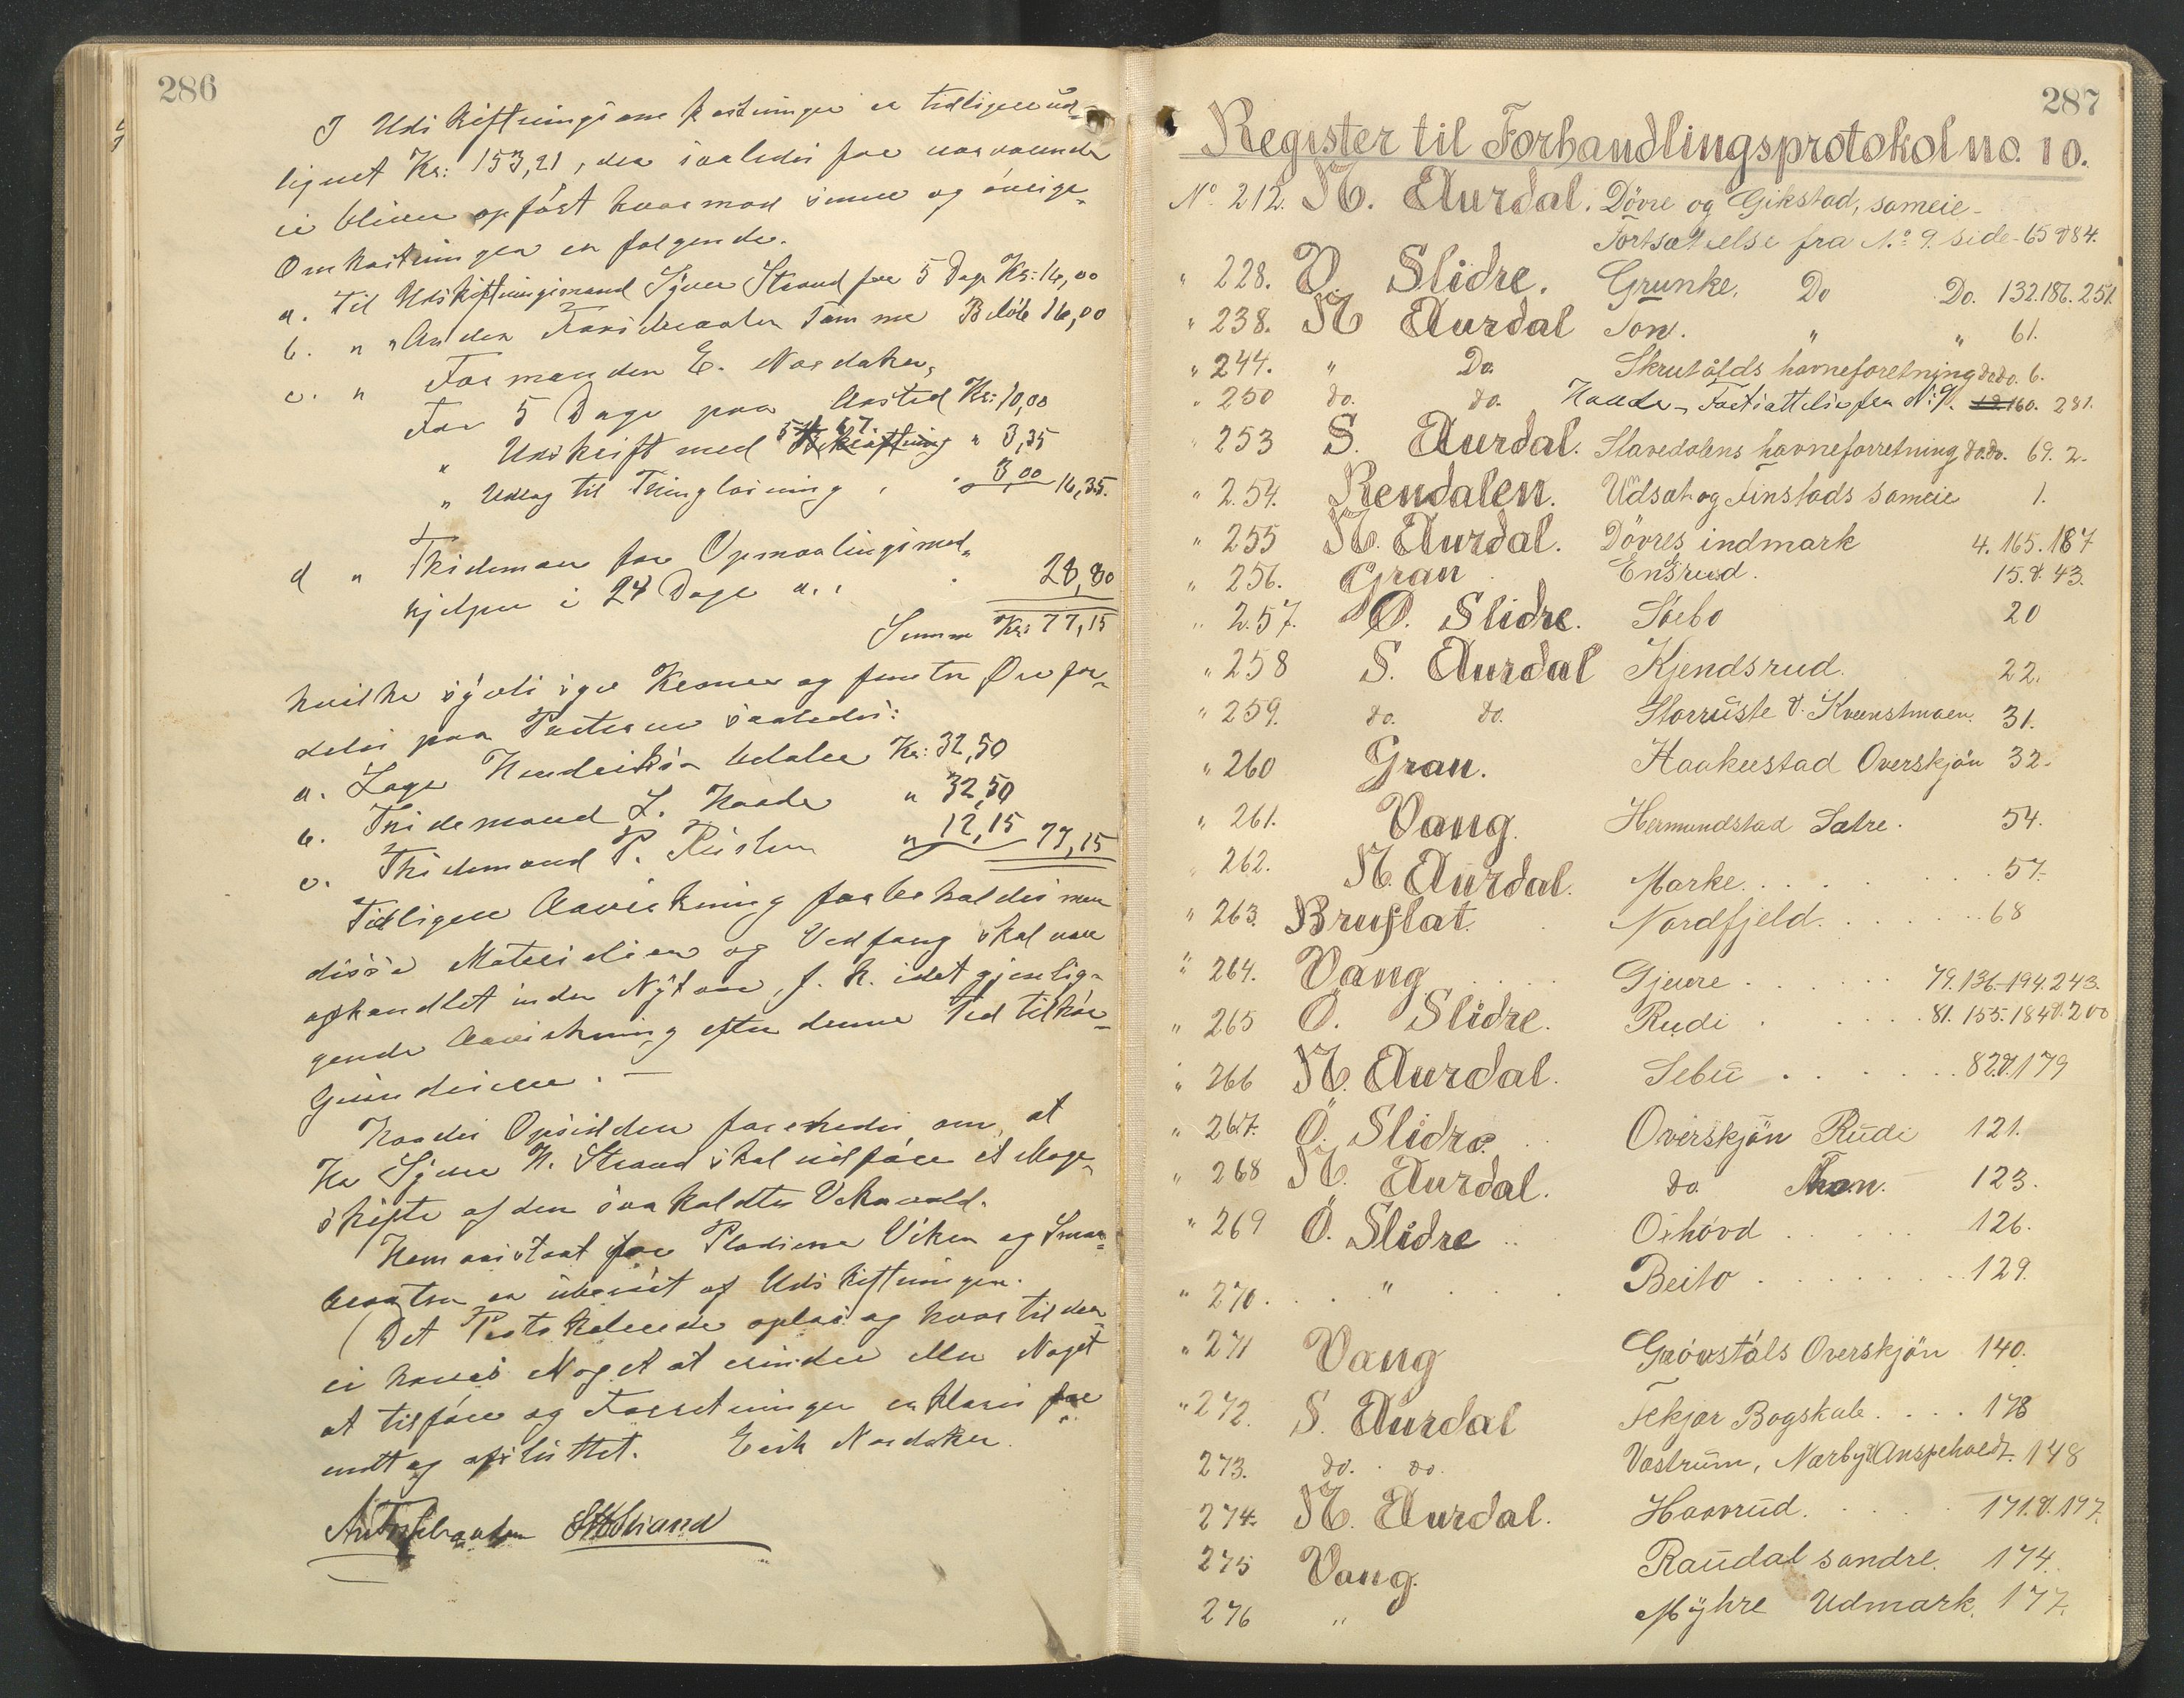 286
I Udskiftningsomkostninger er tidligere ud-
lignet Kr: 153,21, der saaledes for nærværende
ei bliver opført hvormod senere og øvrige
Omkostninger er følgende.
a. Til Udskiftningsmand Syver Strand for 5 Dage Kr: 16,00
b. " " Anden Tømme Beløb 16,00
c. " Formanden E. Nordaker,
For 5 Dage paa Aasted Kr: 10,00
" Udskrift med " 3,35
" Udlæg til Thinglæsning " 3,00 16,35.
d " Thideman for Opmaalingsmed-
hjelper i 24 Dage a. 28,80
Summa Kr: 77,15
hvilke sytti syv Kroner og femten Øre for-
deles paa Parterne saaledes:
a. Lage Hendriksen betaler Kr: 32,50
b. Thidemand L. Kaade " 32,50
c. Thidemand P. Risten " 12,15 77,15
Tidligere Anvisning forbeholdes men
disse Materialier og Vedfang skal være
ophandlet inden Nytaar, f. k. idet gjenlig-
gende Anvisning efter denne Tid tilhør
Grundeieren. —
om, at
Syver N. Strand skal udføre et Mage-
skifte af den saakaldte
for Pladserne Viken og
er uberørt af Udskiftningen.
Det Protokollerede oplæst og hvortil der
ei havdes Noget at erindre eller Noget
at tilføre og Forretningen erklæres for
endt og afsluttet. Erik Nordaker.
SNStrand
287
Register til Forhandlingsprotokol no. 10.
No. 212. N. Aurdal. Dövre og Gikstad, sameie -
Fortsættelse fra No. 9. side - 65 & 84.
" 228. V. Slidre. Grunke. Do Do. 132. 186. 251.
" 238. N Aurdal Ton. " " 61.
" 244. " Do. Skrutålds havneforetning do do. 6.
" 250 do. do. Kaade - Fortsættelse fra No. 9. 160. 281.
" 253 S. Aurdal. Stavedalens havneforretning do. do. 69. 2.
" 254. Rendalen. Udsæt og Finstads sameie 1.
" 255 N. Aurdal. Dövres indmark 4. 165. 187
" 256. Gran Engerud. 15. & 43.
" 257. Ö. Slidre. Söebo 20
" 258 S. Aurdal Kjendsrud. 22.
" 259. do. do. Storruste & Kvernstmoen. 31.
" 260 Gran. Haakenstad Overskjön 32.
" 261. Vang. Hermundstad Satre. 54.
" 262. N. Aurdal. Marke. . . . . . . 57.
" 263. Bruflat. Nordfjeld. . . . . . 68
" 264. Vang . . . . Gjevre . . . . . . 79. 136 - 194. 243.
" 265 Ö. Slidre. Rudi . . . . . 81. 155. 184 & 200
" 266 N. Aurdal. Sebu . . . . . . 82. & 179
" 267. Ö. Slidre. . . Overskjön Rudi 121.
" 268 N. Aurdal. do. 123.
" 269 Ö. Slidre . . Oihövd . . . . . 126.
" 270. . . . " . . . . Beito . . . . . . . . 129.
" 271 Vang Grövstöls Overskjön 140.
" 272. S. Aurdal Fekjær Bogskale. . . . 178
273. do. do. Vostrum, Nærby & Anspeholdt. 148
274. N. Aurdal. Haavrud. . . . 171. & 177.
275 Vang. Raudal sondre. 174.
276 " Myhre Udmark. 177.